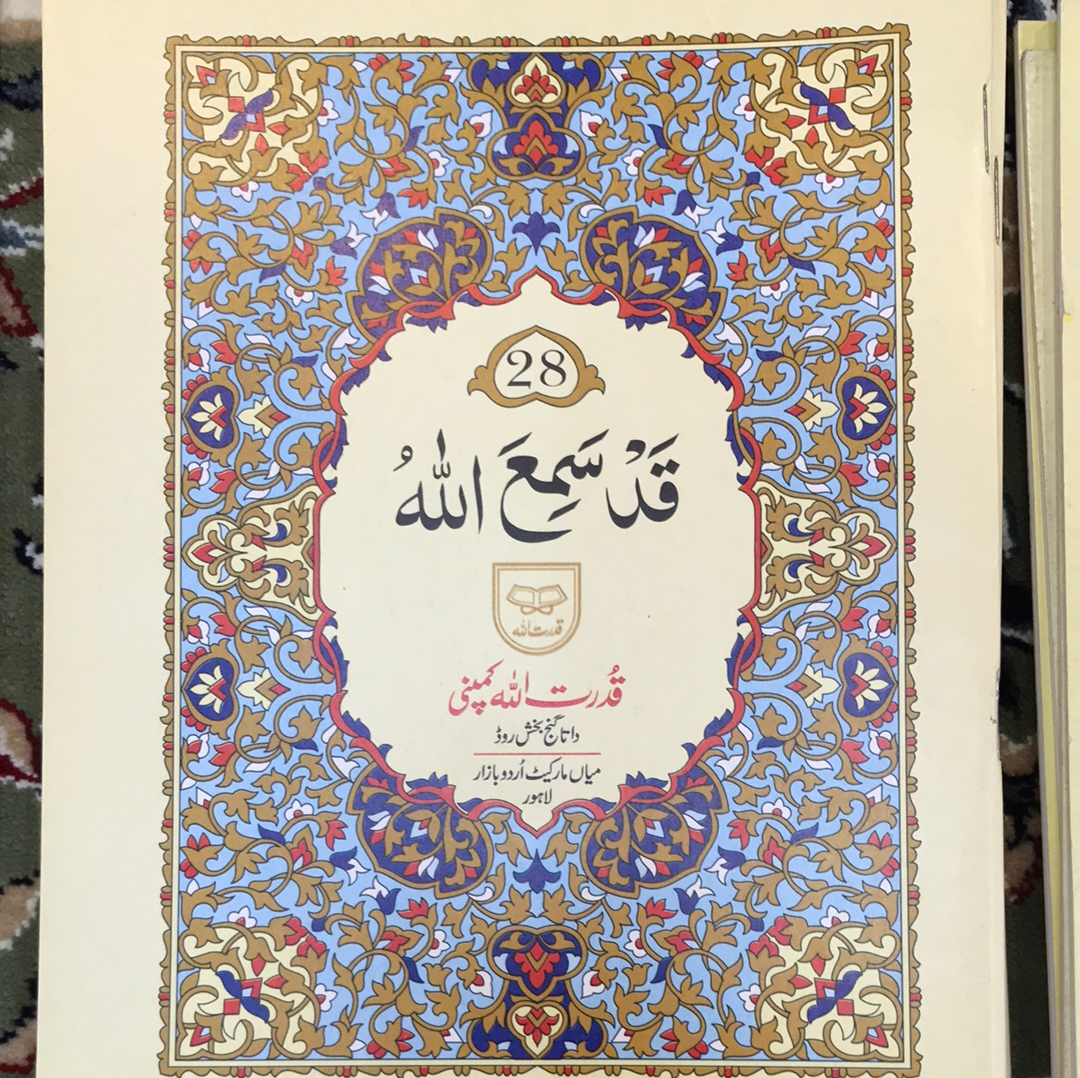 28
قَدْ سَمِعَ اللهُ
قدرت اللہ
قُدرت اللہ کمپنی
داتا گنج بخش روڈ
میاں مارکیٹ اُردو بازار
لاہور